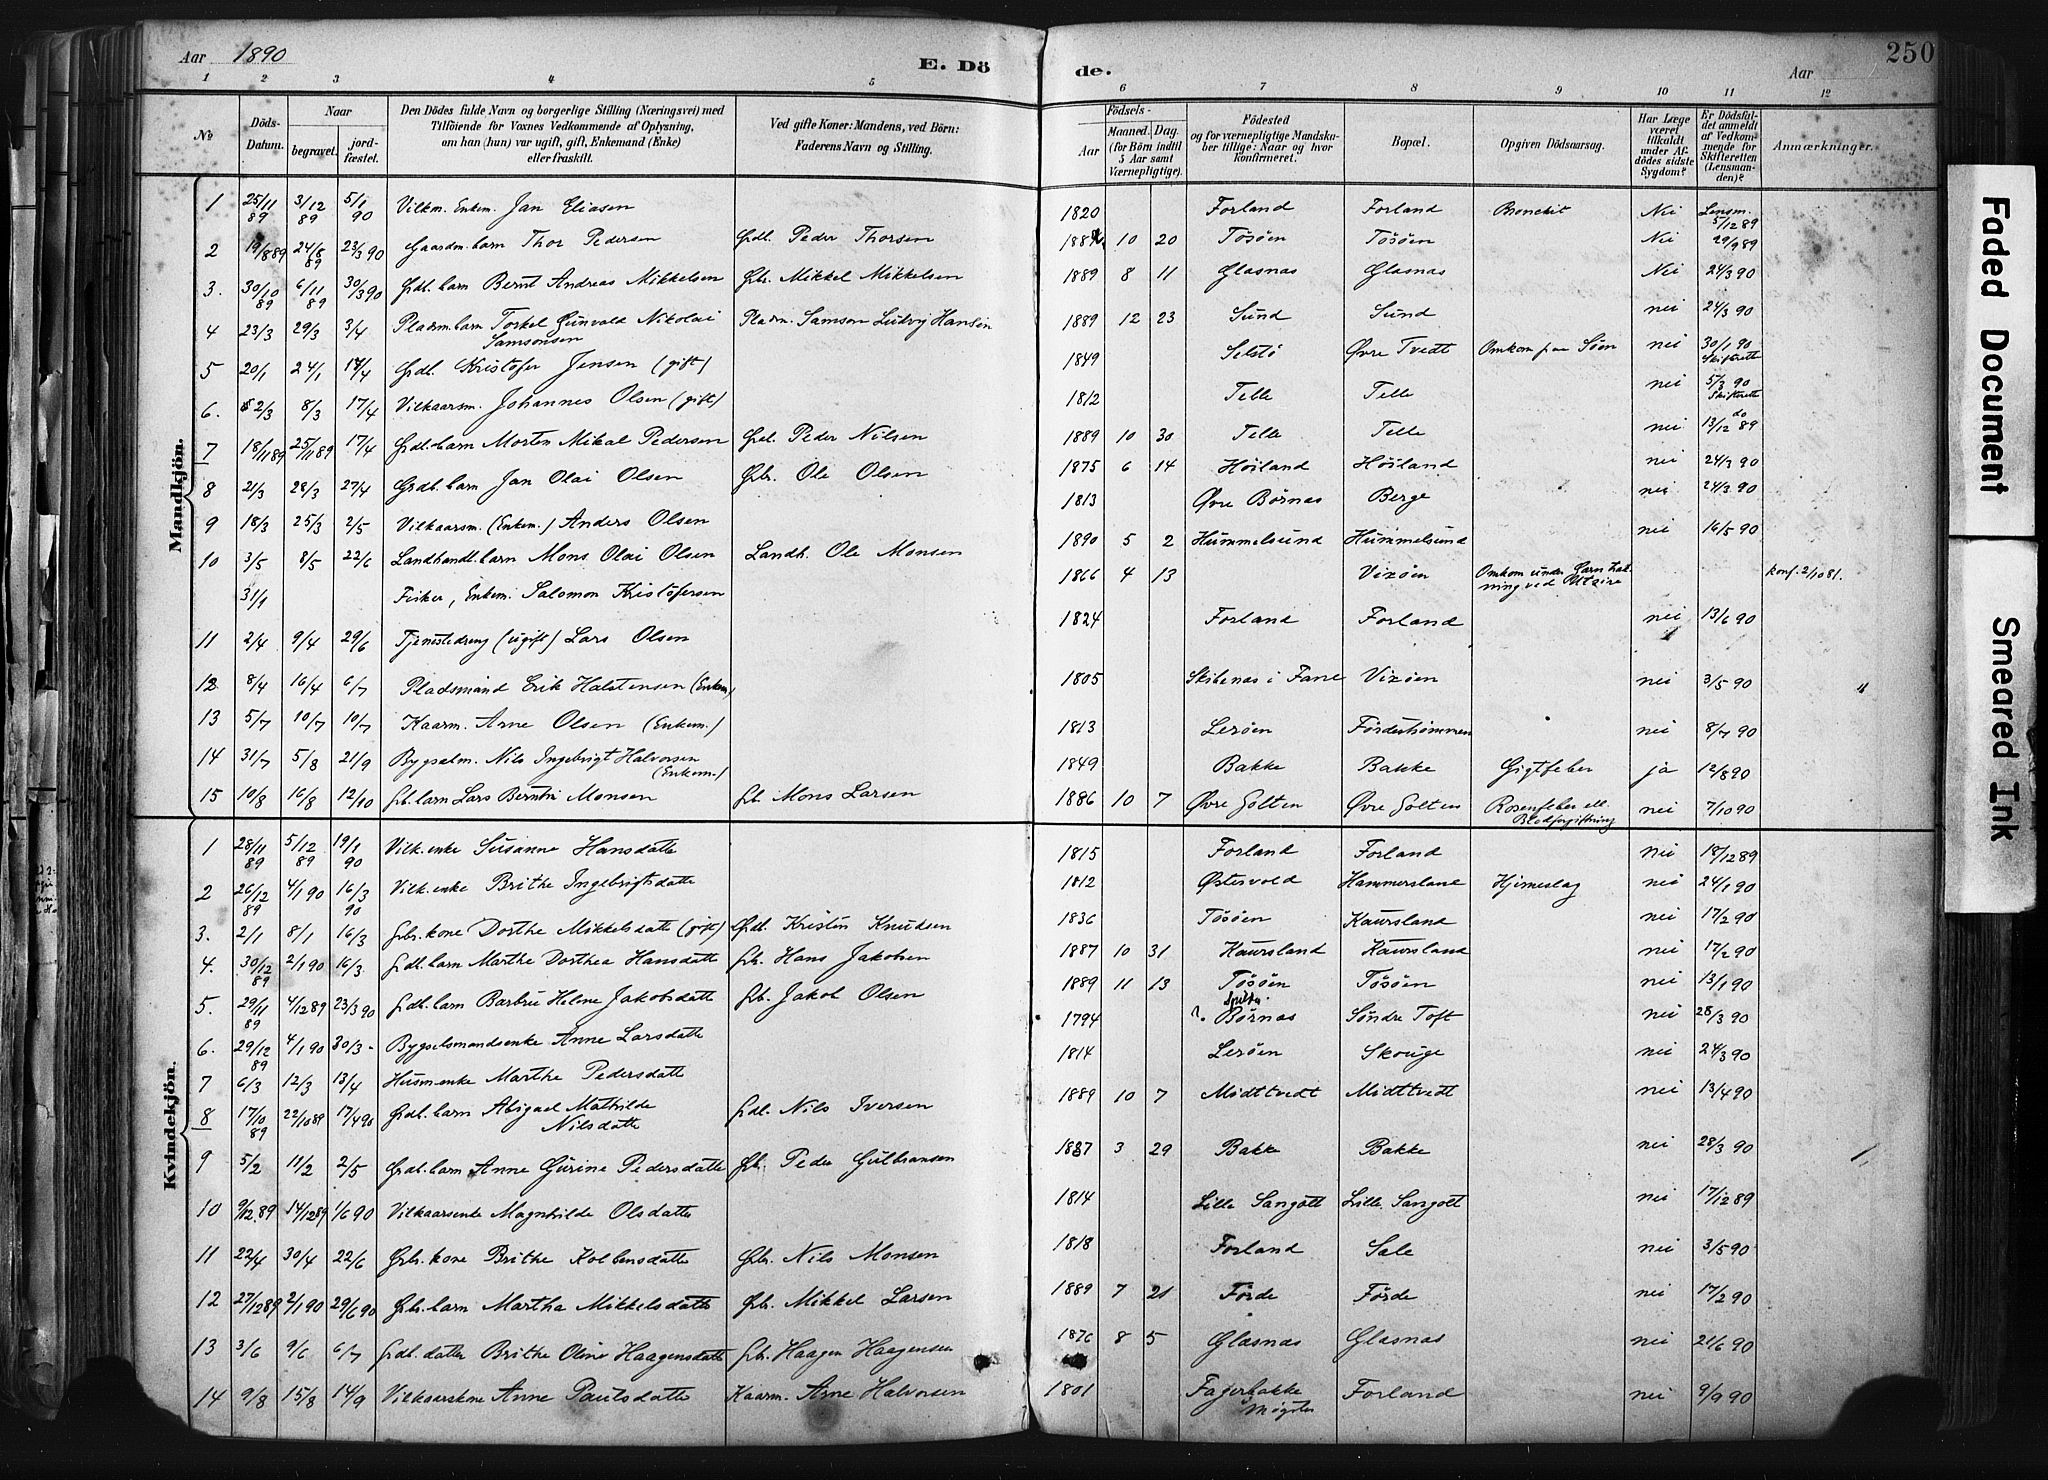 Aar 1890
E. Dö
de.
Aar
250
1 2 3 4 5 6 7 8 9 10 11 12
No
Döds-Datum.
Naar
begravet.
jord-fæstet.
Den Dödes fulde Navn og borgerlige Stilling (Næringsvei) med
Tilföiende for Voxnes Vedkommende af Oplysning,
om han (hun) var ugift, gift, Enkemand (Enke)
eller fraskilt.
Ved gifte Koner: Mandens, ved Börn:
Faderens Navn og Stilling.
Födsels-
Aar
Maaned. Dag.
(for Börn indtil
5 Aar samt
Værnepligtige).
Födested
og for værnepligtige Mandska-
ber tillige: Naar og hvor
konfirmeret.
Bopæl.
Opgiven Dödsaarsag.
Har Læge
været
tilkaldt
under Af-
dödes sidste
Sygdom?
Er Dödsfal-
det anmeldt
af Vedkom-
mende for
Skifteretten
(Lensman-
den)?
Anmærkninger.
Mandkjön.
1 25/11 89 3/12 89 5/1 90 Vilkm. Enkem. Jan Eliasen 1820 Forland Forland Bronchit Nei Lensm. 5/12 89
2 19/8 89 24/8 89 23/3 90 Gaardm. barn Thor Pedersen Grdb. Peder Thorsen 10 20 Tösöen Tösöen Nei 29/9 89
3. 30/10 89 6/11 89 30/3 90 Grdb. barn Bernt Andreas Mikkelsen Gbr. Mikkel Mikkelsen 1889 8 11 Glasnas Glasnas Nei 24/3 90
4 23/3 29/3 3/4 Pladsm. barn Torkel Gunvald Nikolai Samsonsen Pladsm. Samson Ludvig Hansen 1889 12 23 Sund Sund nei 24/3 90
5 20/1 24/1 17/4 Grdb. Kristofer Jensen (gift) 1849 Selstö Övre Tvedt Omkom paa Söen nei 30/1 90 Skifterett
6. 2/3 8/3 17/4 Vilkaarsm. Johannes Olsen (gift) 1812 Telle Telle nei 5/3 90 Skifterett
7 18/11 89 25/11 89 17/4 Grdb. barn Morten Mikal Pedersen Grd. Peder Nilsen 1889 10 30 Telle Telle nei do 13/12 89
8 21/3 28/3 27/4 Grdb. barn Jan Olai Olsen Gbr. Ole Olsen 1875 6 14 Höiland Höiland nei 24/3 90
9 18/3 25/3 2/5 Vilkaarsm. (Enkem.) Anders Olsen 1813 Övre Börnas Berge nei 24/3 90
10 3/5 8/5 22/6 Landhandl. barn Mons Olai Olsen Landh. Ole Monsen 1890 5 2 Hummelsund Hummelsund nei 16/5 90
31/1 Fisker, Enkem. Salomon Kristofersen 1866 4 13 Vizöen Omkom under konf. 2/10 81.
11 2/4 9/4 29/6 Tjenestedreng (ugift) Lars Olsen 1824 Forland Forland nei 13/6 90
12 8/4 16/4 6/7 Pladsmand Erik Halstensen (Enkem) 1805 Skibenas i Fane Vizöen nei 3/5 90
13 5/7 10/7 10/7 Kaarm. Arne Olsen (Enkem.) 1813 Leröen Fördetsömmen nei 8/7 90
14 31/7 5/8 21/9 Bygselm. Nils Ingebrigt Halvorsen (Enkem.) 1849 Bakke Bakke Gigtfeber ja 12/8 90
15 10/8 16/8 12/10 Gb. barn Lars Berntin Monsen Gb. Mons Larsen 1886 10 7 Övre Golten Övre Golten Rosenfeber ell. Blodforgiftning nei 7/10 90
Kvindekjön.
1 28/11 89 5/12 89 19/1 90 Vilk. enke Susanne Hansdatte 1815 Forland Forland nei 18/12 89
2 26/12 89 4/1 90 16/3 90 Vilk. enke Brithe Ingebrigtsdatte 1812 Östervold Hammersland Hjerneslag nei 24/1 90
3. 2/1 8/1 16/3 Gbr. kone Dorthe Mikkelsdatte (gift) Grdb. Kristen Knudsen 1836 Tösöen Kaursland nei 17/2 90
4. 30/12 89 2/1 90 16/3. Grdb. barn Marthe Dorthea Hansdatte Gb. Hans Jakobsen 1887 10 31 Kaursland Kaursland nei 17/2 90
5. 29/11 89 4/12 89 23/3 90 Grdb. barn Barbru Helene Jakobsdatte Gb. Jakob Olsen 1889 11 13 Tösöen Tösöen nei 13/1 90
6. 29/12 89 4/1 90 30/3 - Bygselmandsenke Anne Larsdatte 1794 Börnas Söndre Toft nei 28/3 90
7 6/3 12/3 13/4 Husm. enke Marthe Pedersdatte 1814 Leröen Skouge nei 24/3 90
8 17/10 89 22/10 89 17/4 90 Grdb. barn Abigael Mathilde Nilsdatte Grdb. Nils Iversen 1889 10 7 Midttvedt Midttvedt nei 13/4 90
9 5/2 11/2 2/5 Grdb. barn Anne Gurine Pedersdatte Gb. Peder Gulbransen 1887 3 29 Bakke Bakke nei 28/3 90
10 9/12 89 14/12 89 1/6 90 Vilkaarsenke Magnhilde Olsdatte 1814 Lille Sangolt Lille Sangolt nei 17/12 89
11 22/4 30/4 22/6 Gbr. kone Brithe Kolbensdatte Gbr. Nils Monsen 1818 Forland Sale nei 3/5 90
12 27/12 89 2/1 90 29/6 90 Gbr. barn Martha Mikkelsdatte Gbr. Mikkel Larsen 1889 7 21 Förde Förde nei 17/2 90
13 3/6 9/6 6/7 Grdb. datter Brithe Oline Haagensdatte Gbr. Haagen Haagensen 1876 8 5 Glasnas Glasnas nei 21/6 90
14 9/8 15/8 14/9 Vilkaarskone Anne Paulsdatte Kaarm. Arne Halvorsen 1801 Fagerbakke Mögster Forland nei 9/9 90
Faded Document
Smeared Ink